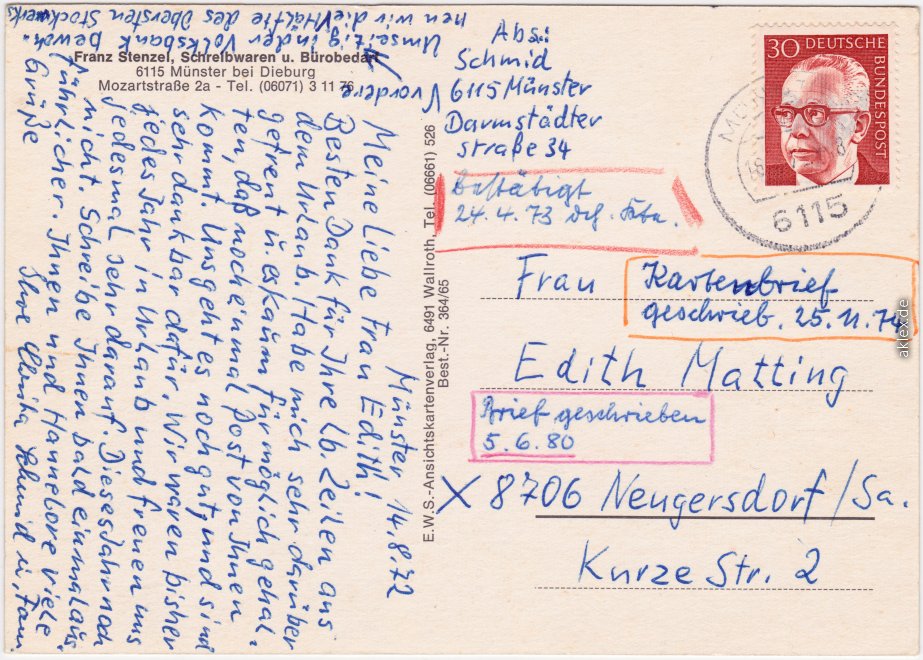 Umseitig in der Volksbank bewoh-
nen wir die vordere Hälfte des obersten Stockwerks
Franz Stenzel, Schreibwaren u. Bürobedarf
6115 Münster bei Dieburg
Mozartstraße 2a - Tel. (06071) 3 11 76
Münster 14.8.72
Meine liebe Frau Edith!
Besten Dank für Ihre lb. Zeilen aus
dem Urlaub. Habe mich sehr darüber
gefreut u. es kaum für möglich gehal-
ten, daß noch einmal Post von Ihnen
kommt. Uns geht es noch gut und sind
sehr dankbar dafür. Wir waren bisher
jedes Jahr in Urlaub und freuen uns
jedesmal sehr darauf. Dieses Jahr noch
nicht. Schreibe Ihnen bald einmal aus-
führlicher. Ihnen und Hannelore viele
Grüße
Ihre Schmid u. Fam
E.W.S.-Ansichtskartenverlag, 6491 Wallroth, Tel. (06661) 526
Best.-Nr. 364/65
Abs.:
Schmid
6115 Münster
Darmstädter
straße 34
Bestätigt
24.4.73
30 DEUTSCHE
BUNDESPOST
6115
Frau
Kartenbrief
geschrieb. 25.11.74
Edith Matting
Brief geschrieben
5.6.80
X 8706 Neugersdorf/Sa.
Kurze Str. 2
aklex.de